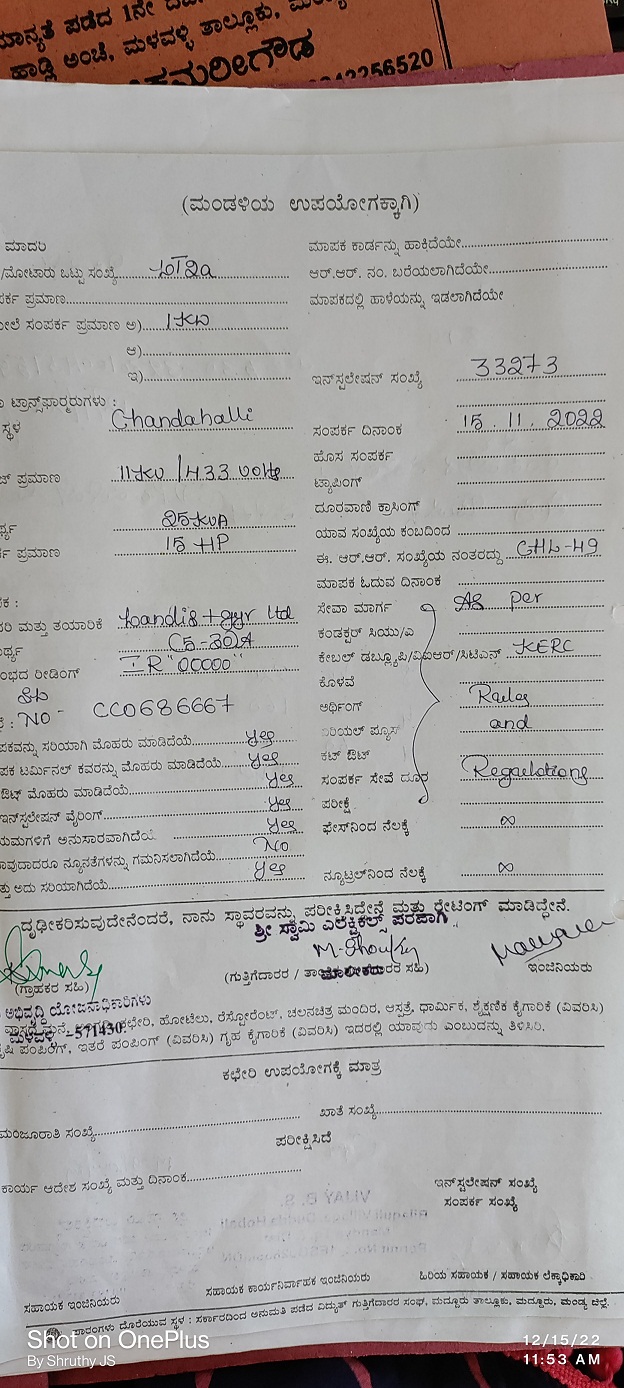 ಮಾನ್ಯತೆ ಪಡೆದ 1ನೇ
ಹಾಡ್ಲಿ ಅಂಚೆ, ಮಳವಳ್ಳಿ ತಾಲ್ಲೂಕು,
(ಮಂಡಳಿಯ ಉಪಯೋಗಕ್ಕಾಗಿ)
ಮಾದರಿ
ಮಾಪಕ ಕಾರ್ಡನ್ನು ಹಾಕಿದೆಯೇ
/ಮೋಟಾರು ಒಟ್ಟು ಸಂಖ್ಯೆ
ಆರ್.ಆರ್. ನಂ. ಬರೆಯಲಾಗಿದೆಯೇ
ಪ್ರಮಾಣ
ಮಾಪಕದಲ್ಲಿ ಹಾಳೆಯನ್ನು ಇಡಲಾಗಿದೆಯೇ
ಸಂಪರ್ಕ ಪ್ರಮಾಣ ಅ)
ಆ)
ಇ)
ಇನ್‌ಸ್ಟಲೇಷನ್ ಸಂಖ್ಯೆ 33273
ಟ್ರಾನ್ಸ್‌ಫಾರ್ಮರುಗಳು :
ಸ್ಥಳ Chandahalli
ಸಂಪರ್ಕ ದಿನಾಂಕ 15.11.2022
ಹೊಸ ಸಂಪರ್ಕ
ಪ್ರಮಾಣ 11KV/433 volts
ಟ್ಯಾಪಿಂಗ್
ದೂರವಾಣಿ ಕ್ರಾಸಿಂಗ್
25KVA
ಯಾವ ಸಂಖ್ಯೆಯ ಕಂಬದಿಂದ
ಪ್ರಮಾಣ 15 HP
ಈ. ಆರ್.ಆರ್. ಸಂಖ್ಯೆಯ ನಂತರದ್ದು CHL-49
ಮಾಪಕ ಓದುವ ದಿನಾಂಕ
ಮತ್ತು ತಯಾರಿಕೆ Landis+gyr Ltd
ಸೇವಾ ಮಾರ್ಗ As per
ಕಂಡಕ್ಟರ್ ಸಿಯು/ಎ
ರೀಡಿಂಗ್ IR "00000"
KERC
ಕೊಳವೆ
NO - CC0686667
ಅರ್ಥಿಂಗ್ Rules
and
ಸರಿಯಾಗಿ ಮೊಹರು ಮಾಡಿದೆಯೆ Yes
ಕಟ್ ಔಟ್
ಟರ್ಮಿನಲ್ ಕವರನ್ನು ಮೊಹರು ಮಾಡಿದೆಯೆ Yes
ಸಂಪರ್ಕ ಸೇವೆ ದೂರ Regulations
ಔಟ್ ಮೊಹರು ಮಾಡಿದೆಯೆ Yes
ಪರೀಕ್ಷೆ
ಇನ್‌ಸ್ಟಲೇಷನ್ ವೈರಿಂಗ್ Yes
ಫೇಸ್‌ನಿಂದ ನೆಲಕ್ಕೆ ∞
ಅನುಸಾರವಾಗಿದೆಯೆ Yes
ನ್ಯೂನತೆಗಳನ್ನು ಗಮನಿಸಲಾಗಿದೆಯೆ No
ಅದು ಸರಿಯಾಗಿದೆಯೆ Yes
ನ್ಯೂಟ್ರಲ್‌ನಿಂದ ನೆಲಕ್ಕೆ ∞
ದೃಢೀಕರಿಸುವುದೇನೆಂದರೆ, ನಾನು ಸ್ಥಾವರವನ್ನು ಪರೀಕ್ಷಿಸಿದ್ದೇನೆ ಮತ್ತು ರೇಟಿಂಗ್ ಮಾಡಿದ್ದೇನೆ.
ಶ್ರೀ ಸ್ವಾಮಿ ಎಲೆಕ್ಟ್ರಿಕಲ್ಸ್ ಪರವಾಗಿ
(ಗ್ರಾಹಕರ ಸಹಿ)
ಇಂಜಿನಿಯರು
ಅಭಿವೃದ್ಧಿ ಯೋಜನಾಧಿಕಾರಿಗಳು
ಕಛೇರಿ, ಹೋಟೆಲು, ರೆಸ್ಟೋರೆಂಟ್, ಚಲನಚಿತ್ರ ಮಂದಿರ, ಆಸ್ಪತ್ರೆ, ಧಾರ್ಮಿಕ, ಶೈಕ್ಷಣಿಕ ಕೈಗಾರಿಕೆ (ವಿವರಿಸಿ)
ಮಳವಳ್ಳಿ -571430
ಪಂಪಿಂಗ್, ಇತರೆ ಪಂಪಿಂಗ್ (ವಿವರಿಸಿ) ಗೃಹ ಕೈಗಾರಿಕೆ (ವಿವರಿಸಿ) ಇದರಲ್ಲಿ ಯಾವುದು ಎಂಬುದನ್ನು ತಿಳಿಸಿರಿ.
ಕಛೇರಿ ಉಪಯೋಗಕ್ಕೆ ಮಾತ್ರ
ಮಂಜೂರಾತಿ ಸಂಖ್ಯೆ
ಖಾತೆ ಸಂಖ್ಯೆ
ಪರೀಕ್ಷಿಸಿದೆ
ಕಾರ್ಯ ಆದೇಶ ಸಂಖ್ಯೆ ಮತ್ತು ದಿನಾಂಕ
ಇನ್‌ಸ್ಟಲೇಷನ್ ಸಂಖ್ಯೆ
ಸಂಪರ್ಕ ಸಂಖ್ಯೆ
ಸಹಾಯಕ ಇಂಜಿನಿಯರು
ಸಹಾಯಕ ಕಾರ್ಯನಿರ್ವಾಹಕ ಇಂಜಿನಿಯರು
ಹಿರಿಯ ಸಹಾಯಕ / ಸಹಾಯಕ ಲೆಕ್ಕಾಧಿಕಾರಿ
ಫಾರಂಗಳು ದೊರೆಯುವ ಸ್ಥಳ : ಸರ್ಕಾರದಿಂದ ಅನುಮತಿ ಪಡೆದ ವಿದ್ಯುತ್ ಗುತ್ತಿಗೆದಾರರ ಸಂಘ, ಮದ್ದೂರು ತಾಲ್ಲೂಕು, ಮದ್ದೂರು, ಮಂಡ್ಯ ಜಿಲ್ಲೆ.
Shot on OnePlus
By Shruthy JS
12/15/22
11:53 AM